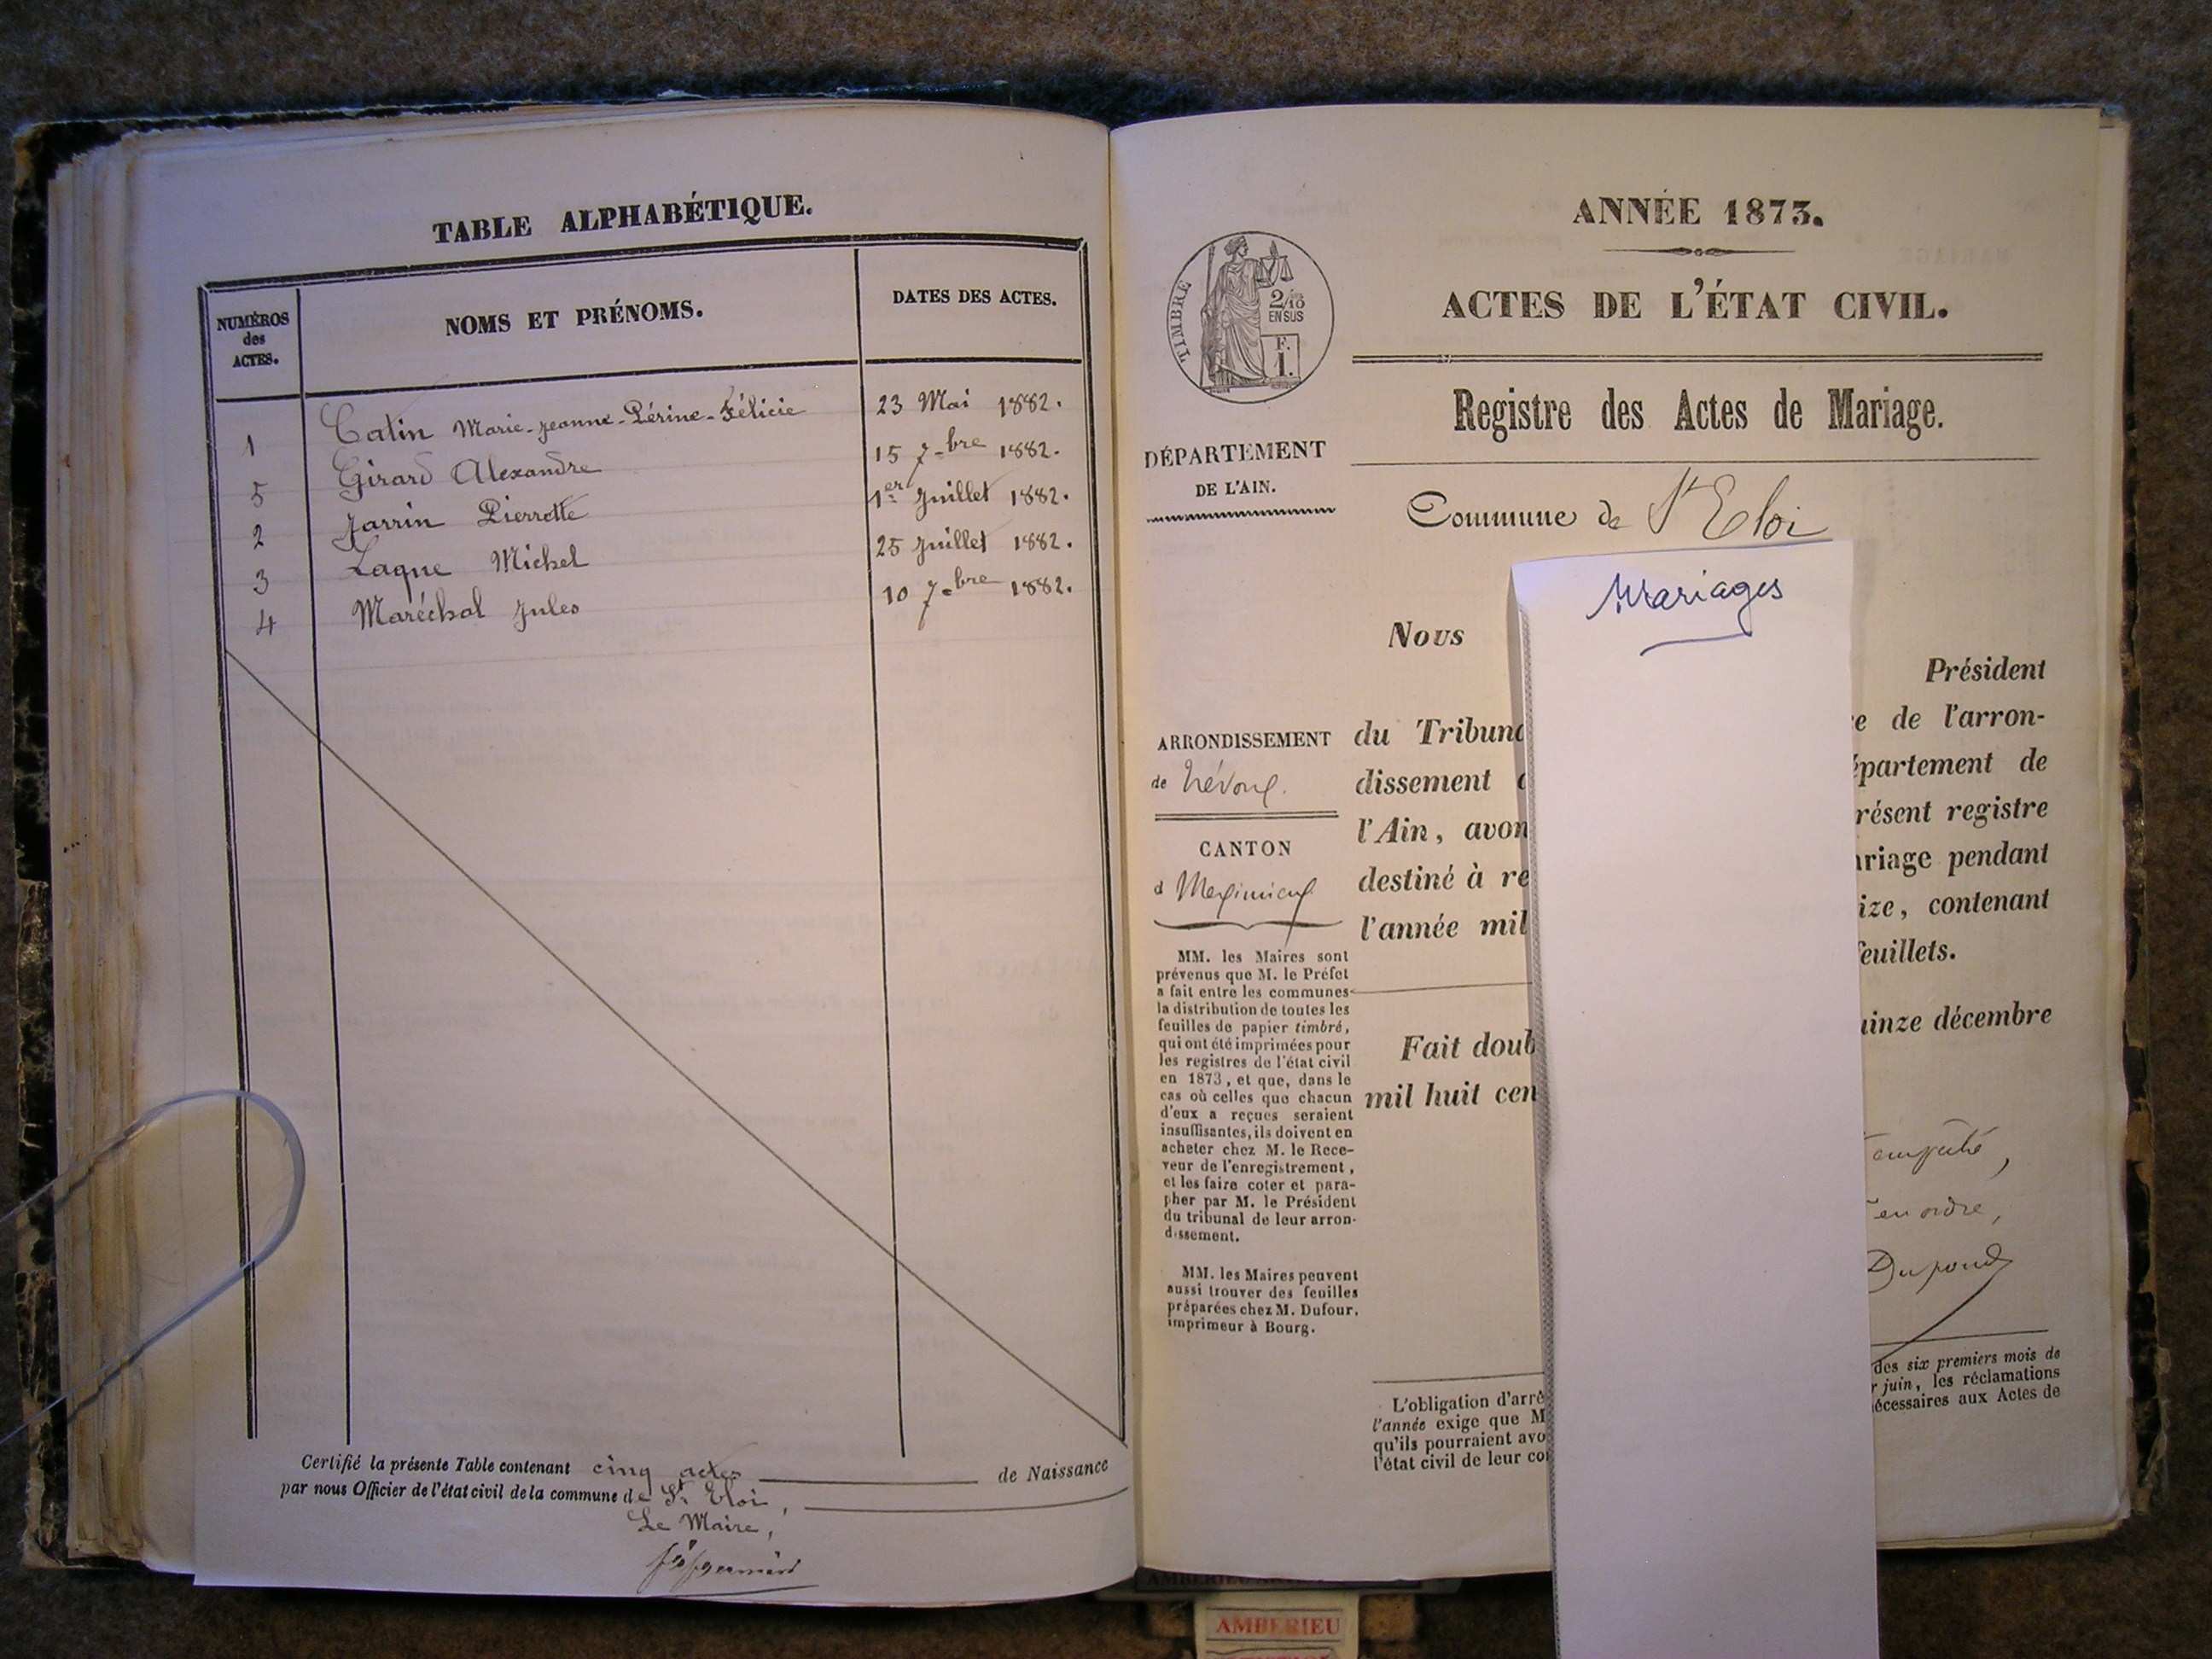 TABLE ALPHABÉTIQUE.
NUMÉROS
des
ACTES.
NOMS ET PRÉNOMS.
DATES DES ACTES.
1 Catin Marie-Jeanne-Périne-Félicie 23 Mai 1882.
5 Girard Alexandre 15 7-bre 1882.
2 Jarrin Pierrette 1er Juillet 1882.
3 Laque Michel 25 Juillet 1882.
4 Maréchal Jules 10 7-bre 1882.
Certifié la présente Table contenant cinq actes de Naissance
par nous Officier de l'état civil de la commune de St Eloi,
Le Maire,
ANNÉE 1873.
ACTES DE L'ÉTAT CIVIL.
TIMBRE
2/10
EN SUS
F.
1.
Registre des Actes de Mariage.
DÉPARTEMENT
DE L'AIN.
Commune de St Eloi
Mariages
Nous
Président
ARRONDISSEMENT
de Trévoux.
CANTON
d Meximieux
du Tribuna
e de l'arron-
dissement
épartement de
l'Ain, avon
résent registre
destiné à re
ariage pendant
l'année mil
ize, contenant
feuillets.
Fait doub
uinze décembre
mil huit cen
MM. les Maires sont
prévenus que M. le Préfet
a fait entre les communes
la distribution de toutes les
feuilles de papier timbré,
qui ont été imprimées pour
les registres de l'état civil
en 1873, et que, dans le
cas où celles que chacun
d'eux a reçues seraient
insuffisantes, ils doivent en
acheter chez M. le Rece-
veur de l'enregistrement,
et les faire coter et para-
pher par M. le Président
du tribunal de leur arron-
dissement.
MM. les Maires peuvent
aussi trouver des feuilles
préparées chez M. Dufour,
imprimeur à Bourg.
empêché,
en ordre,
Dupond
L'obligation d'arrê
des six premiers mois de
l'année exige que M
r juin, les réclamations
qu'ils pourraient avo
écessaires aux Actes de
l'état civil de leur co
AMBERIEU